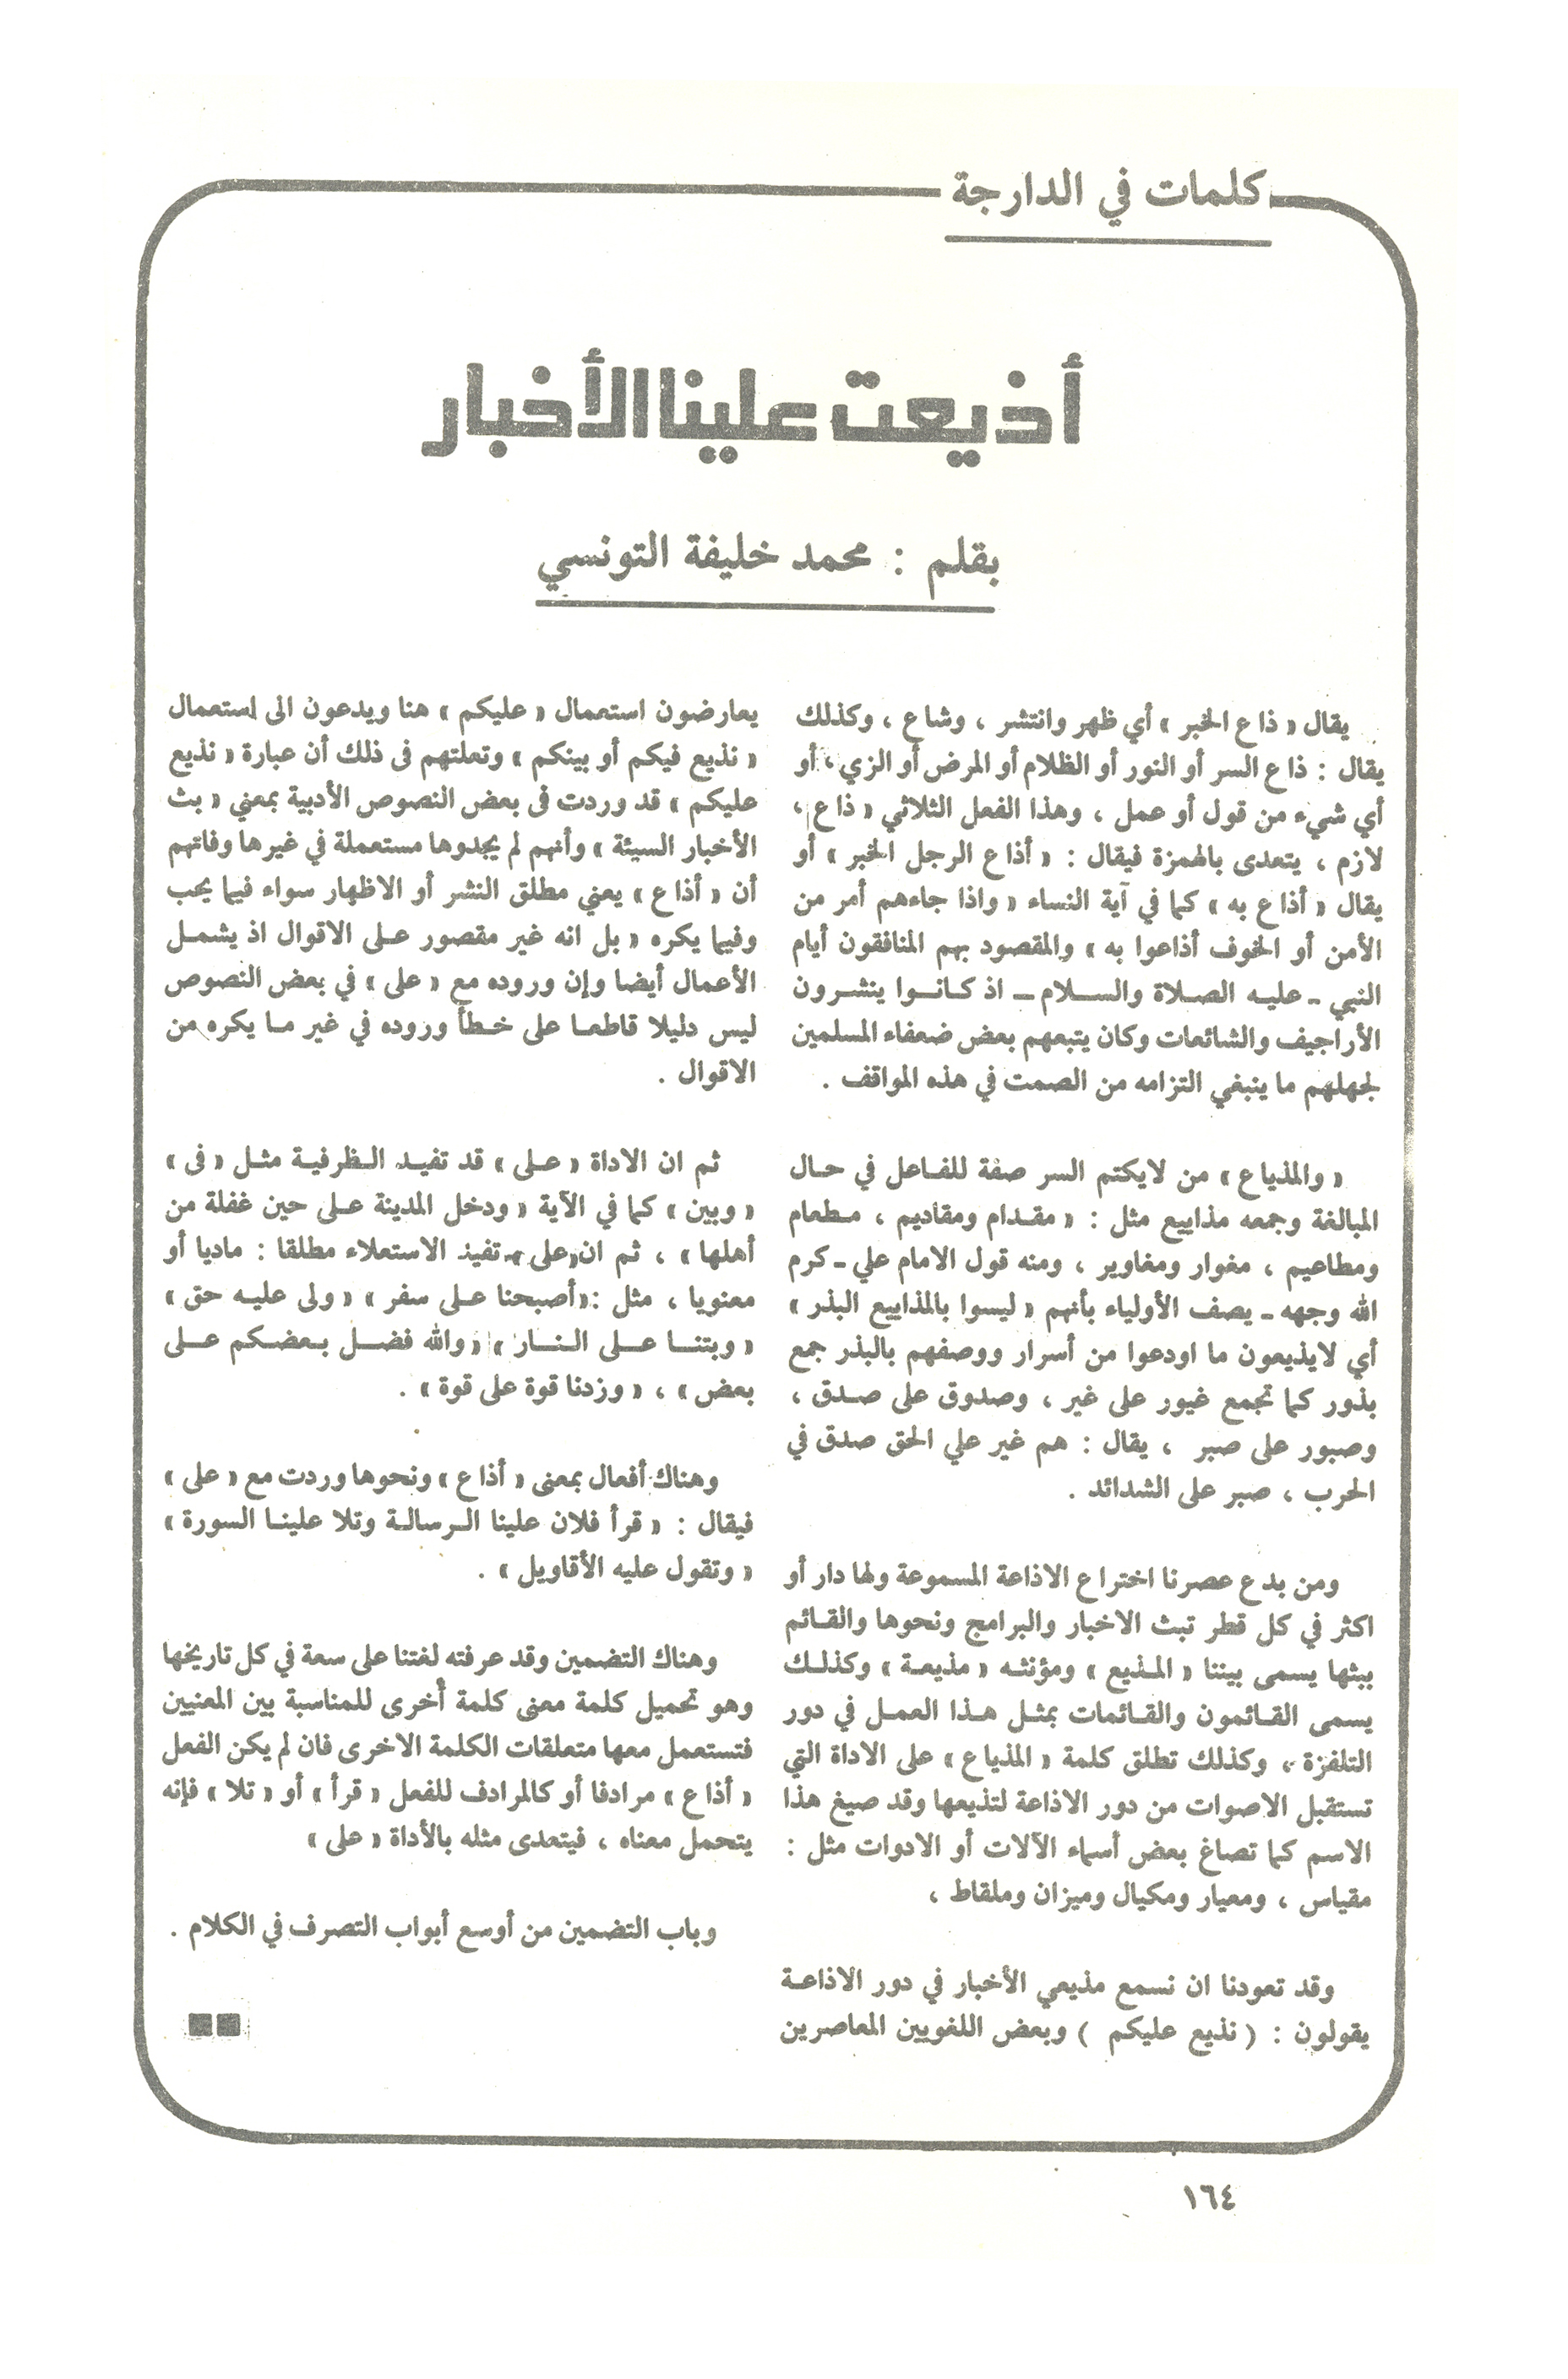 كلمات في الدارجة
أذيعت علينا الأخبار
بقلم : محمد خليفة التونسي
يقال « ذاع الخبر » أي ظهر وانتشر ، وشاع ، وكذلك
يقال : ذاع السر أو النور أو الظلام أو المرض أو الزي ، أو
أي شيء من قول أو عمل ، وهذا الفعل الثلاثي « ذاع ،
لازم ، يتعدى بالهمزة فيقال : « أذاع الرجل الخبر » أو
يقال « أذاع به » كما في آية النساء « واذا جاءهم أمر من
الأمن أو الخوف أذاعوا به » والمقصود بهم المنافقون أيام
النبي ـ عليه الصلاة والسلام ـ اذ كانوا ينشرون
الأراجيف والشائعات وكان يتبعهم بعض ضعفاء المسلمين
لجهلهم ما ينبغي التزامه من الصمت في هذه المواقف .
« والمذياع » من لايكتم السر صفة للفاعل في حال
المبالغة وجمعه مذاييع مثل : « مقدام ومقاديم ، مطعام
ومطاعيم ، مغوار ومغاوير ، ومنه قول الامام علي ـ كرم
الله وجهه ـ يصف الأولياء بأنهم « ليسوا بالمذاييع البذر »
أي لايذيعون ما اودعوا من أسرار ووصفهم بالبذر جمع
بذور كما تجمع غيور على غير ، وصدوق على صدق ،
وصبور على صبر ، يقال : هم غير علي الحق صدق في
الحرب ، صبر على الشدائد .
ومن بدع عصرنا اختراع الاذاعة المسموعة ولها دار أو
اكثر في كل قطر تبث الاخبار والبرامج ونحوها والقائم
ببثها يسمى بيننا « المذيع » ومؤنثه « مذيعة » وكذلك
يسمى القائمون والقائمات بمثل هذا العمل في دور
التلفزة ، وكذلك تطلق كلمة « المذياع » على الاداة التي
تستقبل الاصوات من دور الاذاعة لتذيعها وقد صيغ هذا
الاسم كما تصاغ بعض أسماء الآلات أو الادوات مثل :
مقياس ، ومعيار ومكيال وميزان وملقاط ،
وقد تعودنا ان نسمع مذيعي الأخبار في دور الاذاعة
يقولون : ( نذيع عليكم ) وبعض اللغويين المعاصرين
يعارضون استعمال « عليكم » هنا ويدعون الى استعمال
« نذيع فيكم أو بينكم » وتعلتهم فى ذلك أن عبارة « نذيع
عليكم » قد وردت فى بعض النصوص الأدبية بمعني « بث
الأخبار السيئة » وأنهم لم يجدوها مستعملة في غيرها وفاتهم
أن « أذاع » يعني مطلق النشر أو الاظهار سواء فيما يحب
وفيما يكره « بل انه غير مقصور على الاقوال اذ يشمل
الأعمال أيضا وإن وروده مع « على » في بعض النصوص
ليس دليلا قاطعا على خطأ وروده في غير ما يكره من
الاقوال .
ثم ان الاداة « على » قد تفيد الظرفية مثل « فى »
« وبين » كما في الآية « ودخل المدينة على حين غفلة من
أهلها » ، ثم ان « على » تفيد الاستعلاء مطلقا : ماديا أو
معنويا ، مثل : « أصبحنا على سفر » « ولى عليه حق »
« وبتنا على النار » « والله فضل بعضكم على
بعض » ، « وزدنا قوة على قوة » .
وهناك أفعال بمعنى « أذاع » ونحوها وردت مع « على »
فيقال : « قرأ فلان علينا الرسالة وتلا علينا السورة »
« وتقول عليه الأقاويل » .
وهناك التضمين وقد عرفته لغتنا على سعة في كل تاريخها
وهو تحميل كلمة معنى كلمة أخرى للمناسبة بين المعنيين
فتستعمل معها متعلقات الكلمة الاخرى فان لم يكن الفعل
« أذاع » مرادفا أو كالمرادف للفعل « قرأ » أو « تلا » فإنه
يتحمل معناه ، فيتعدى مثله بالأداة « على »
وباب التضمين من أوسع أبواب التصرف في الكلام .
١٦٤